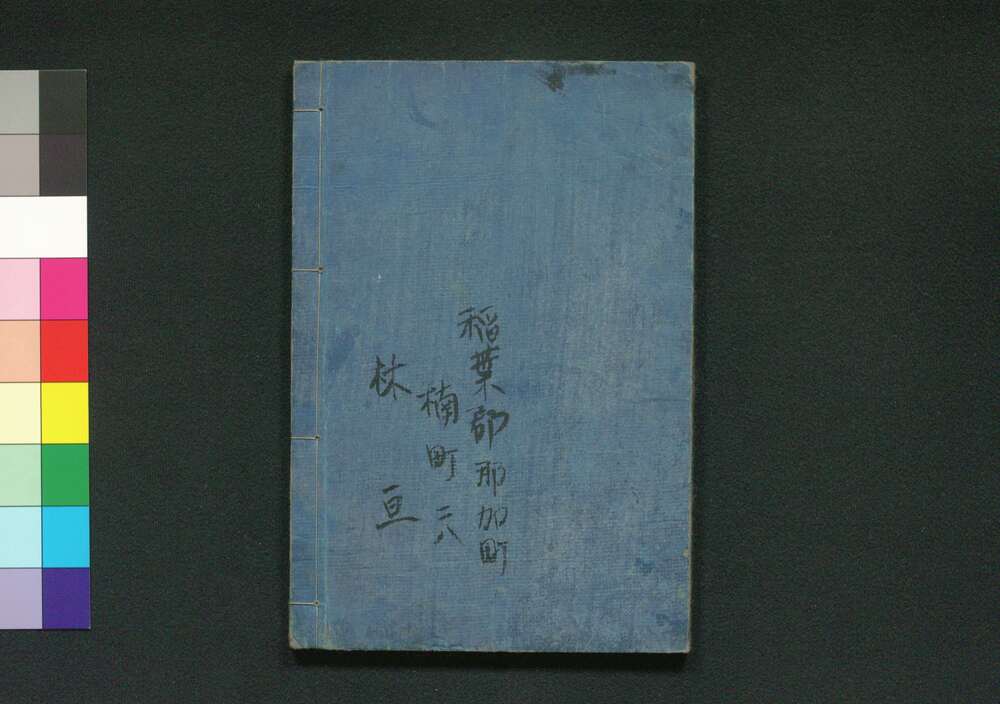 稲葉郡那加町
楠町二八
林亘